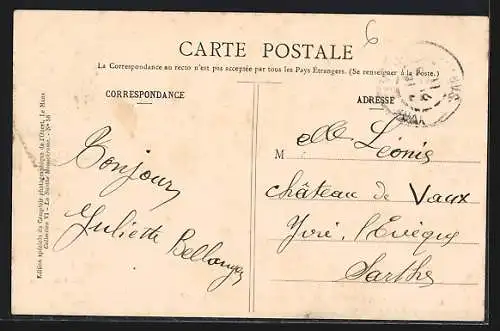 6
CARTE POSTALE
La Correspondance au recto n'est pas acceptée par tous les Pays Étrangers. (Se renseigner à la Poste.)
CORRESPONDANCE
Bonjour
Juliette Bellanger
ADRESSE
M elle Léonis
château de Vaux
Yvré l'Evêque
Sarthe
Edition spéciale du Comptoir photographique de l'Ouest, Le Mans